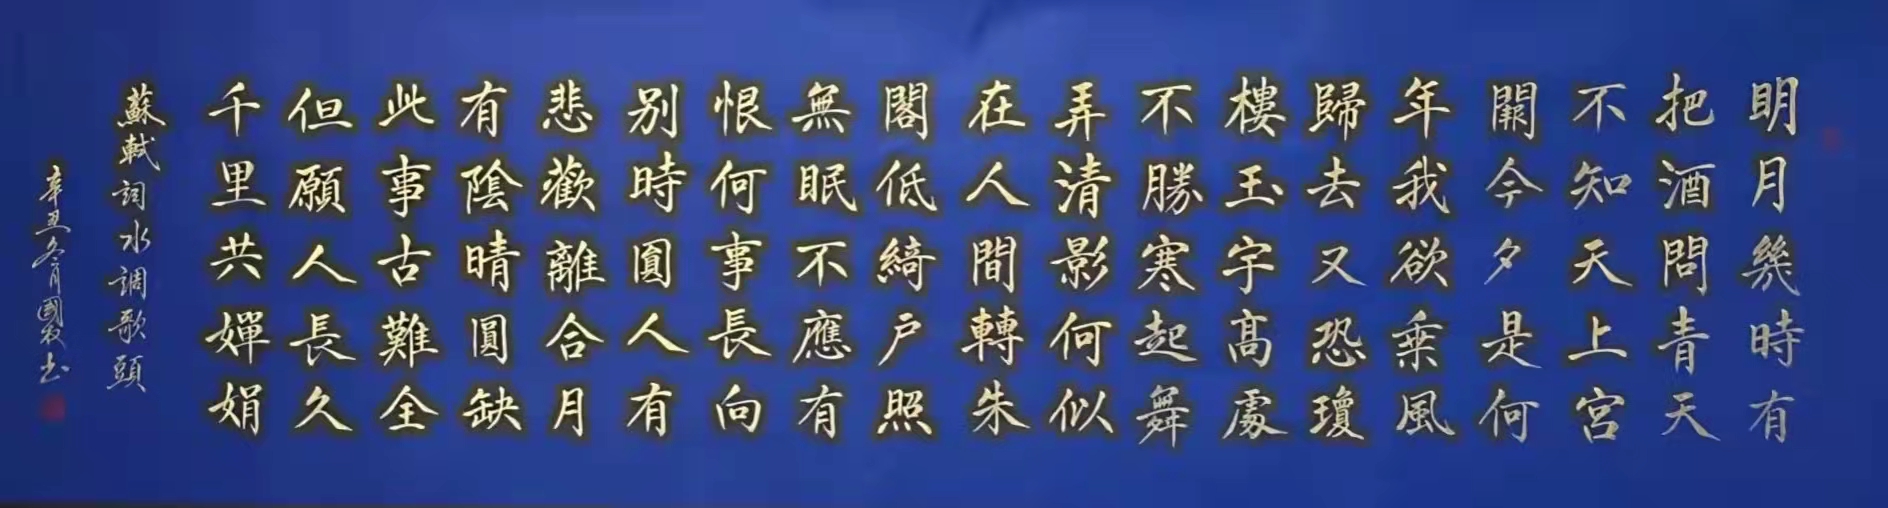 明月幾時有
把酒問青天
不知天上宮
闕今夕是何
年我欲乗風
歸去又恐瓊
樓玉宇髙處
不勝寒起舞
弄清影何似
在人間轉朱
閣低綺戶照
無眠不應有
恨何事長向
别時圓人有
悲歡離合月
有陰晴圓缺
此事古難全
但願人長久
千里共嬋娟
蘇軾詞水調歌頭
辛丑冬月國書